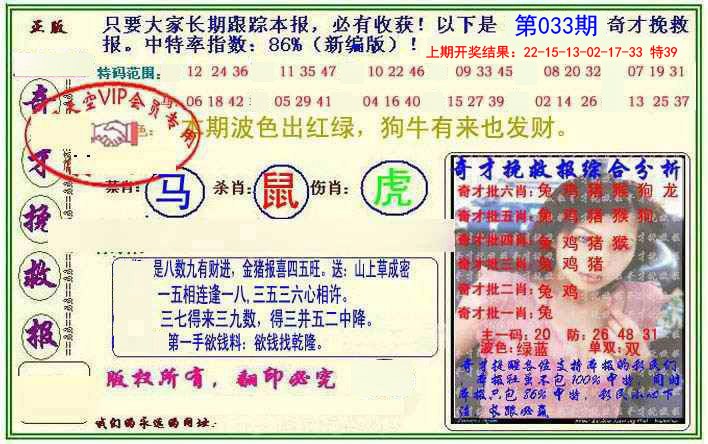 正版
只要大家长期跟踪本报，必有收获！以下是 第033期 奇才挽救
报。中特率指数：86%（新编版）！
上期开奖结果：22-15-13-02-17-33 特39
特码范围：
12 24 36 11 35 47 10 22 46 09 33 45 08 20 32 07 19 31
06 18 42 05 29 41 04 16 40 15 27 39 02 14 26 13 25 37
天空VIP会员专用
本期波色出红绿，狗牛有来也发财。
奇才挽救报
禁肖：马 杀肖：鼠 伤肖：虎
是八数九有财进，金猪报喜四五旺。送：山上草成密
一五相连逢一八,三五三六心相许。
三七得来三九数，得三井五二中降。
第一手欲钱料：欲钱找乾隆。
版权所有，翻印必究
我们的永远的网址：
奇才挽救报综合分析
奇才批六肖：兔 鸡 猪 猴 狗 龙
奇才批五肖：兔 鸡 猪 猴 狗
奇才批四肖：兔 鸡 猪 猴
奇才批三肖：兔 鸡 猪
奇才批二肖：兔 鸡
奇才批一肖：兔
主一码：20 防：26 48 31
波色：绿蓝 单双：双
奇才提醒各位支持本报的彩民们
，本报虽不包100%中特，同时
本报只包86%中特，彩民小心下
注，长跟必赢